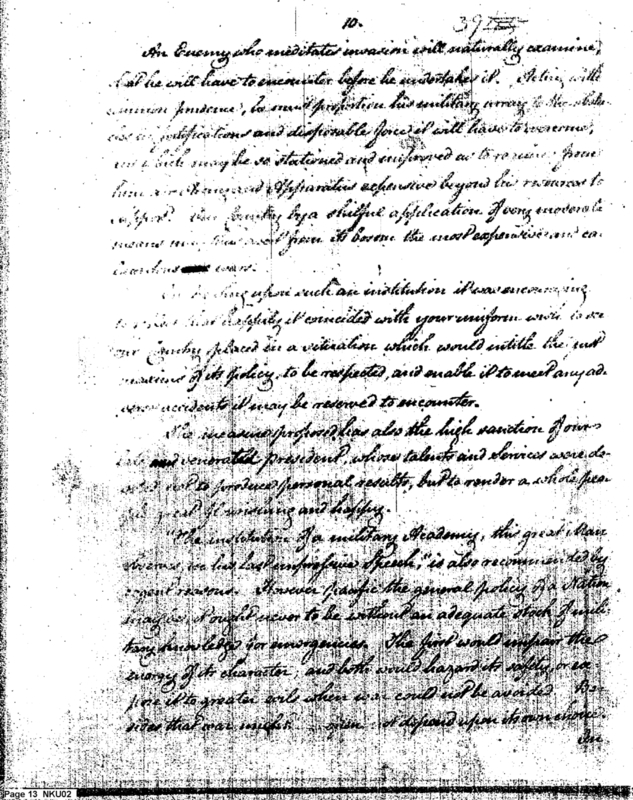 10.
39
An Enemy who meditates invasion will naturally examine,
what he will have to encounter before he undertakes it. Acting with
common prudence, he must proportion his military array to the obsta-
cles or fortifications and disposable force it will have to overcome,
which may be so stationed and improved as to require from
him and Apparatus expensive beyond his resources to
support. Our Country by a skilful application of very moderate
means may thus avert from its bosom the most expensive and ca
wars.
upon such an institution it was encouraging
to that happily it coincided with your uniform wish to see
our Country placed in a situation which would entitle the just
maxims of its policy, to be respected, and enable it to meet any ad
verse accidents it may be reserved to encounter.
The measure proposed has also the high sanction of our
late and venerated president, whose talents and services were de-
voted not to produce personal results, but to render a whole peo
ple great flourishing and happy.
"The institution of a military Academy, this great Man
observes, in his last impressive Speech," is also recommended by
cogent reasons. However pacific the general policy of a Nation
may be it ought never to be without an adequate stock of mili-
tary knowledge for emergencies. The first would impair the
energy of its character, and both would hazard its safety, or ex
pose it to greater evils when war could not be avoided. Be-
sides that war might often not depend upon its own choice.
In
Page 13 NKU02